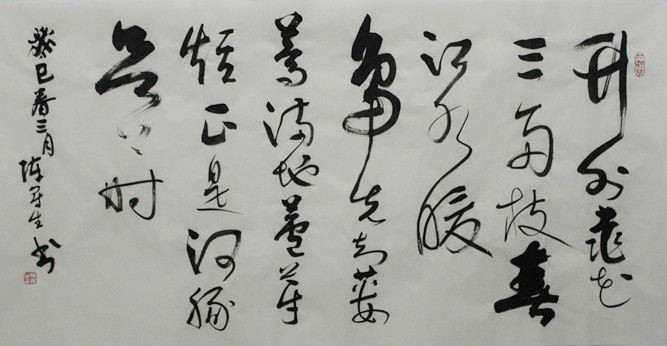 竹外桃花
三两枝春
江水暖
鸭先知蒌
蒿满地蘆芽
短正是河豚
欲上时
癸巳春三月 陈生书